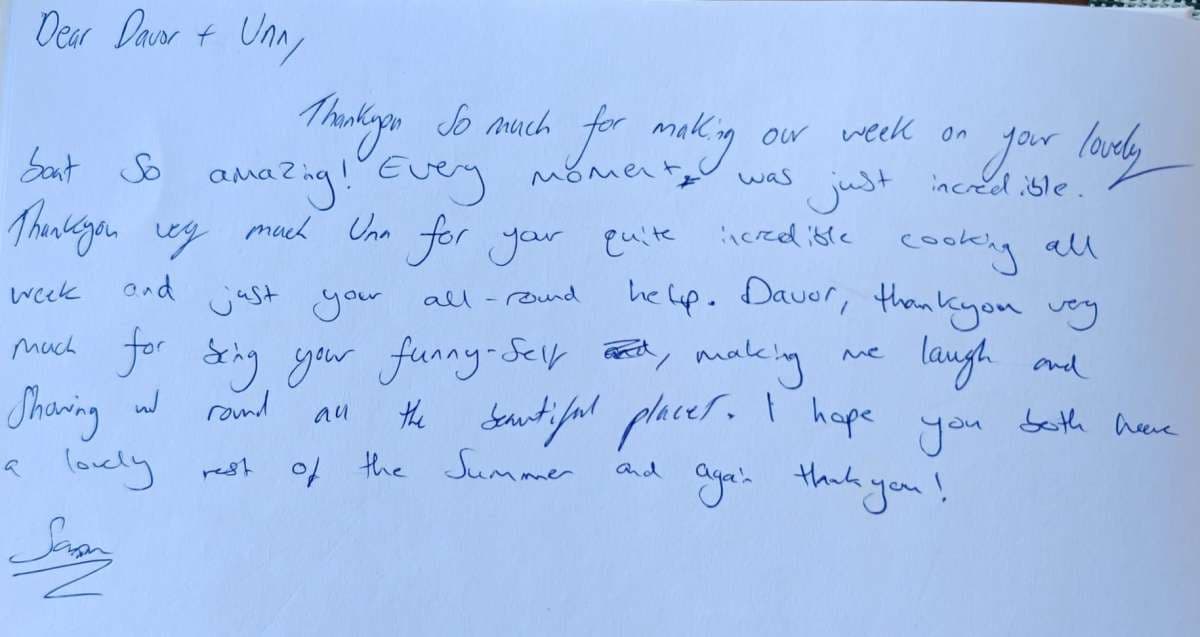 Dear Davor + Unn,
Thankyou so much for making our week on your lovely
boat so amazing! Every moment was just incredible.
Thankyou very much Unn for your quite incredible cooking all
week and just your all-round help. Davor, thankyou very
much for being your funny-self, making me laugh and
showing us round all the beautiful places. I hope you both have
a lovely rest of the Summer and again thankyou!